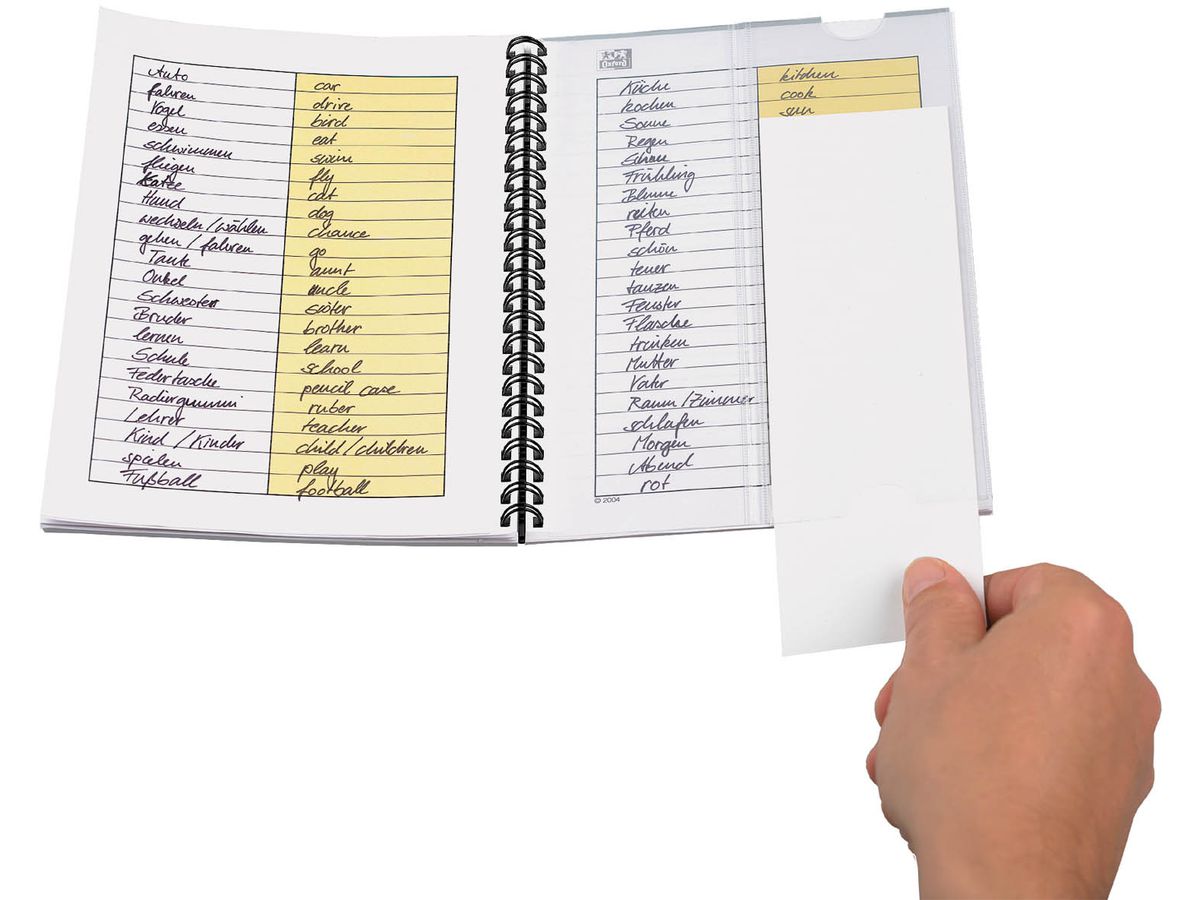 Auto car
fahren drive
Vogel bird
essen eat
schwimmen swim
fliegen fly
Katze cat
Hund dog
wechseln/wählen chance
gehen / fahren go
Tante aunt
Onkel uncle
Schwester sister
Bruder brother
lernen learn
Schule school
Federtasche pencil case
Radiergummi ruber
Lehrer teacher
Kind / Kinder child/children
spielen play
Fußball football
Oxford
Küche kitchen
kochen cook
Sonne sun
Regen
Schnee
Frühling
Blume
reiten
Pferd
schön
teuer
tanzen
Fenster
Flasche
trinken
Mutter
Vater
Raum/Zimmer
schlafen
Morgen
Abend
rot
© 2004